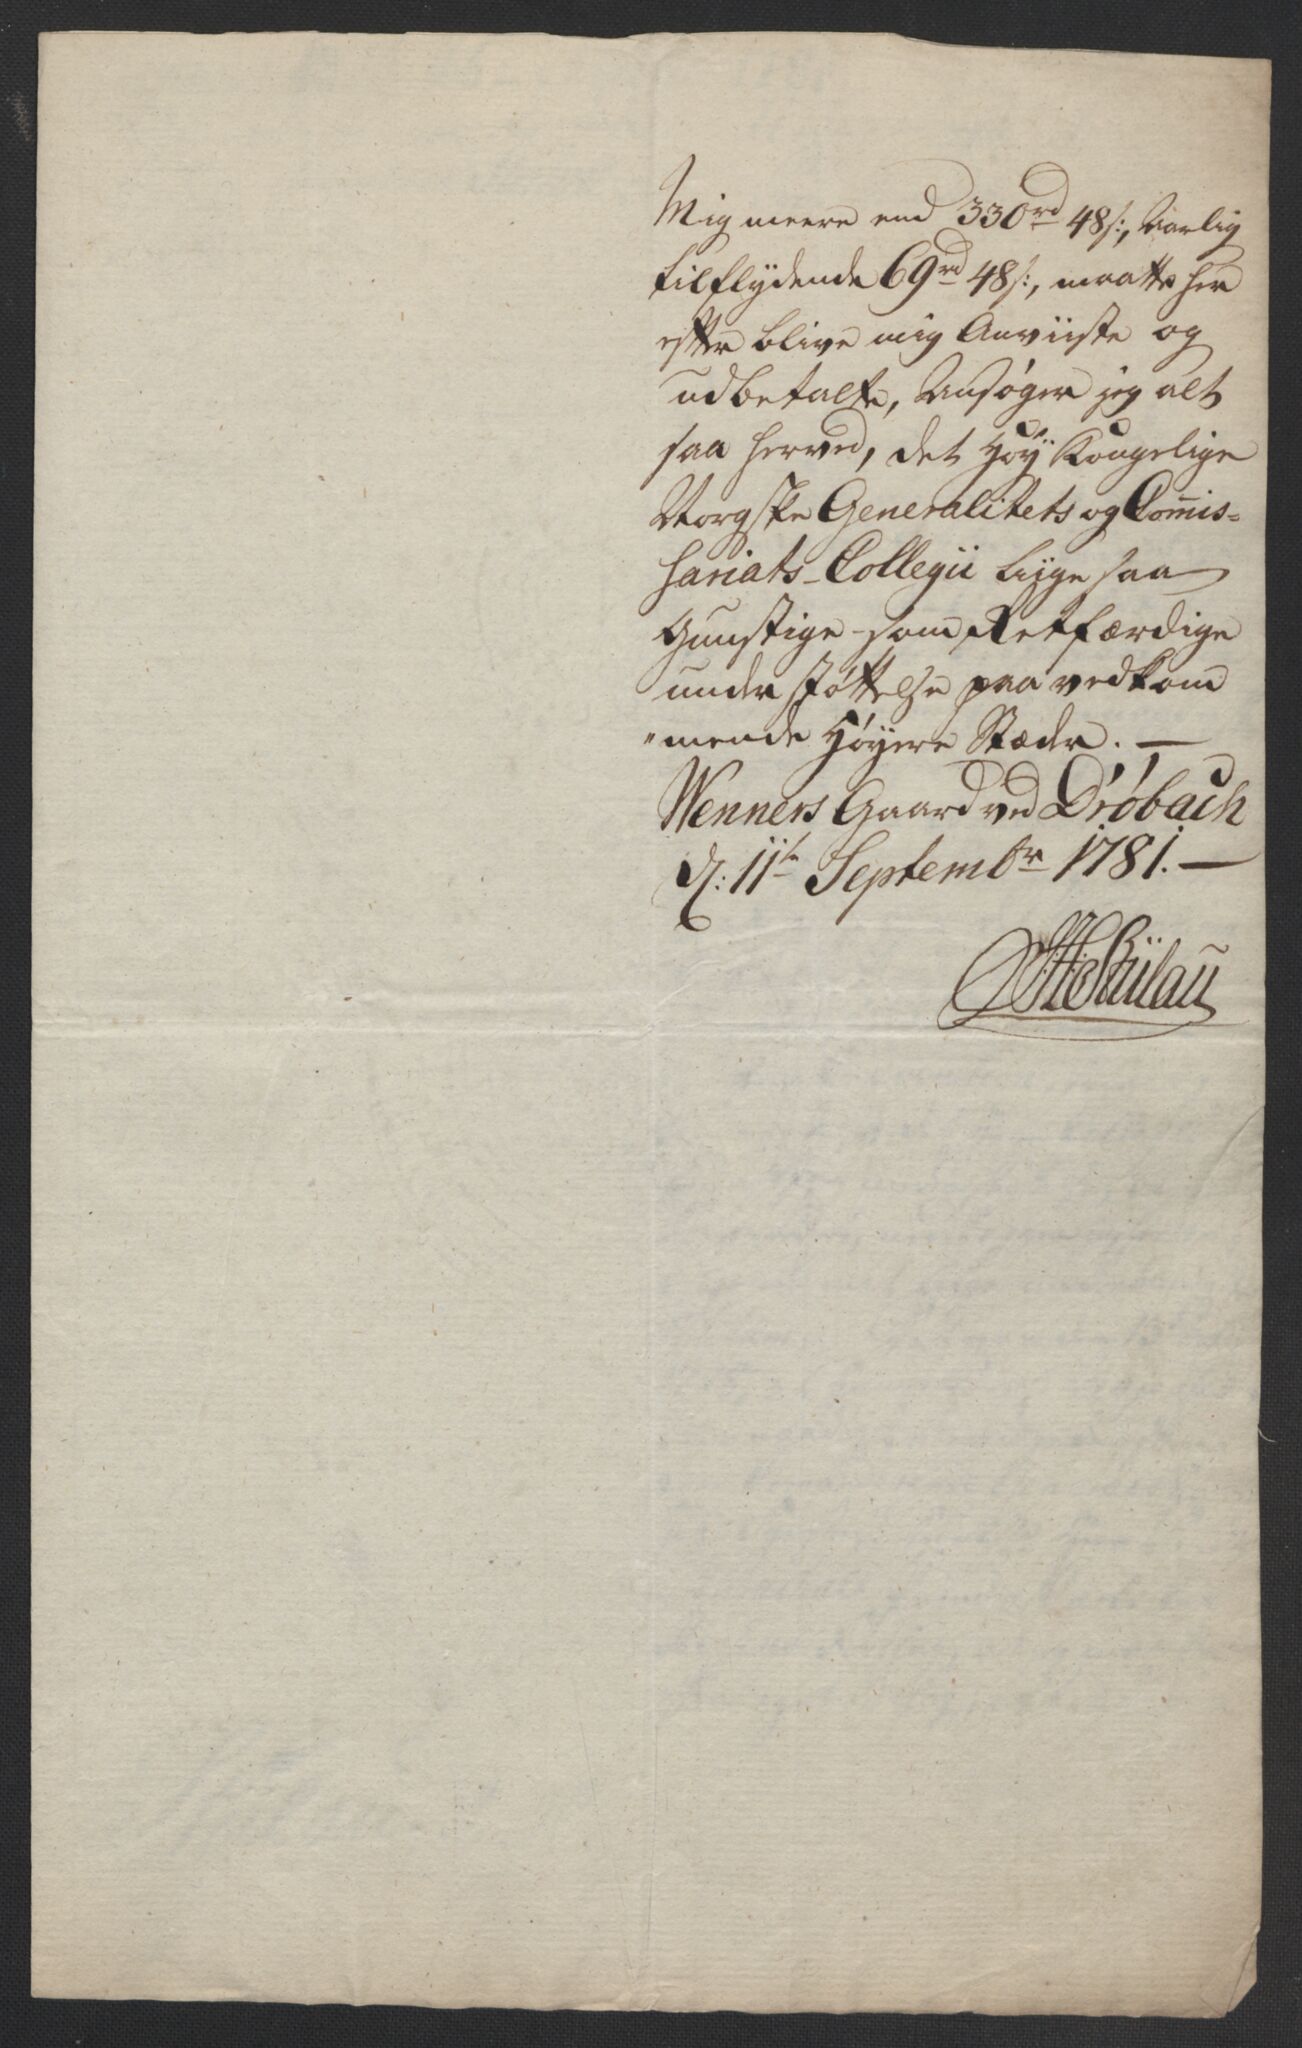 Mig meere end 330rd 48s:, Aarlig
tilflydende 69rd 48s:, maatte her
efter blive mig Anviiste og
udbetalte, Ansøger jeg alt
saa herved, det Høy Kongelige
Norgske Generalitets og Com̄is=
sariats-Collegii liige saa
Gunstige som Retfærdige
under støttelse paa vedkom
"mende Høyere Stæder. —
Wenners Gaard ved Drøbach
d: 11te Septembr 1781. —
Bülaü